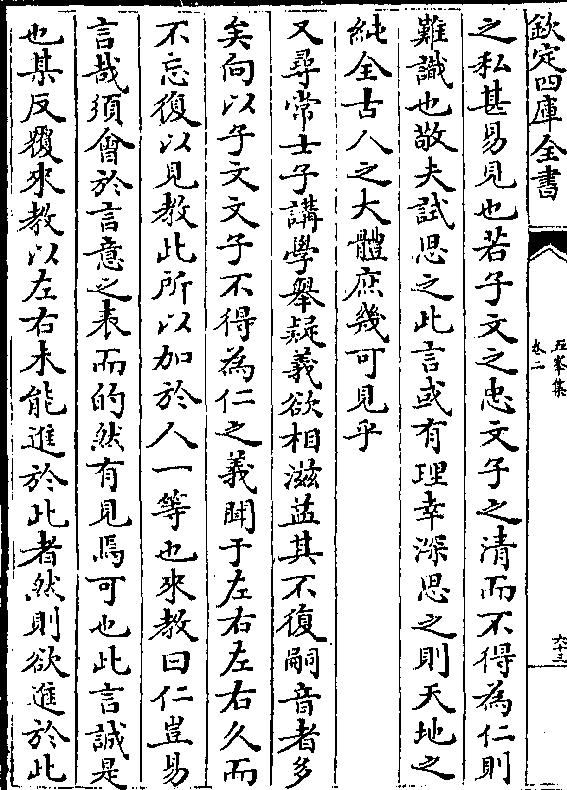 欽定四庫全書
五峯集
卷二
六十三
之私甚易見也若子文之忠文子之清而不得為仁則
難識也敬夫試思之此言或有理幸深思之則天地之
純全古人之大體庶幾可見乎
又尋常士子講學舉疑義欲相滋益其不復嗣音者多
矣向以子文文子不得為仁之義聞于左右左右久而
不忘復以見教此所以加於人一等也來教曰仁豈易
言哉須會於言意之表而的然有見焉可也此言誠是
也某反覆來教以左右未能進於此者然則欲進於此